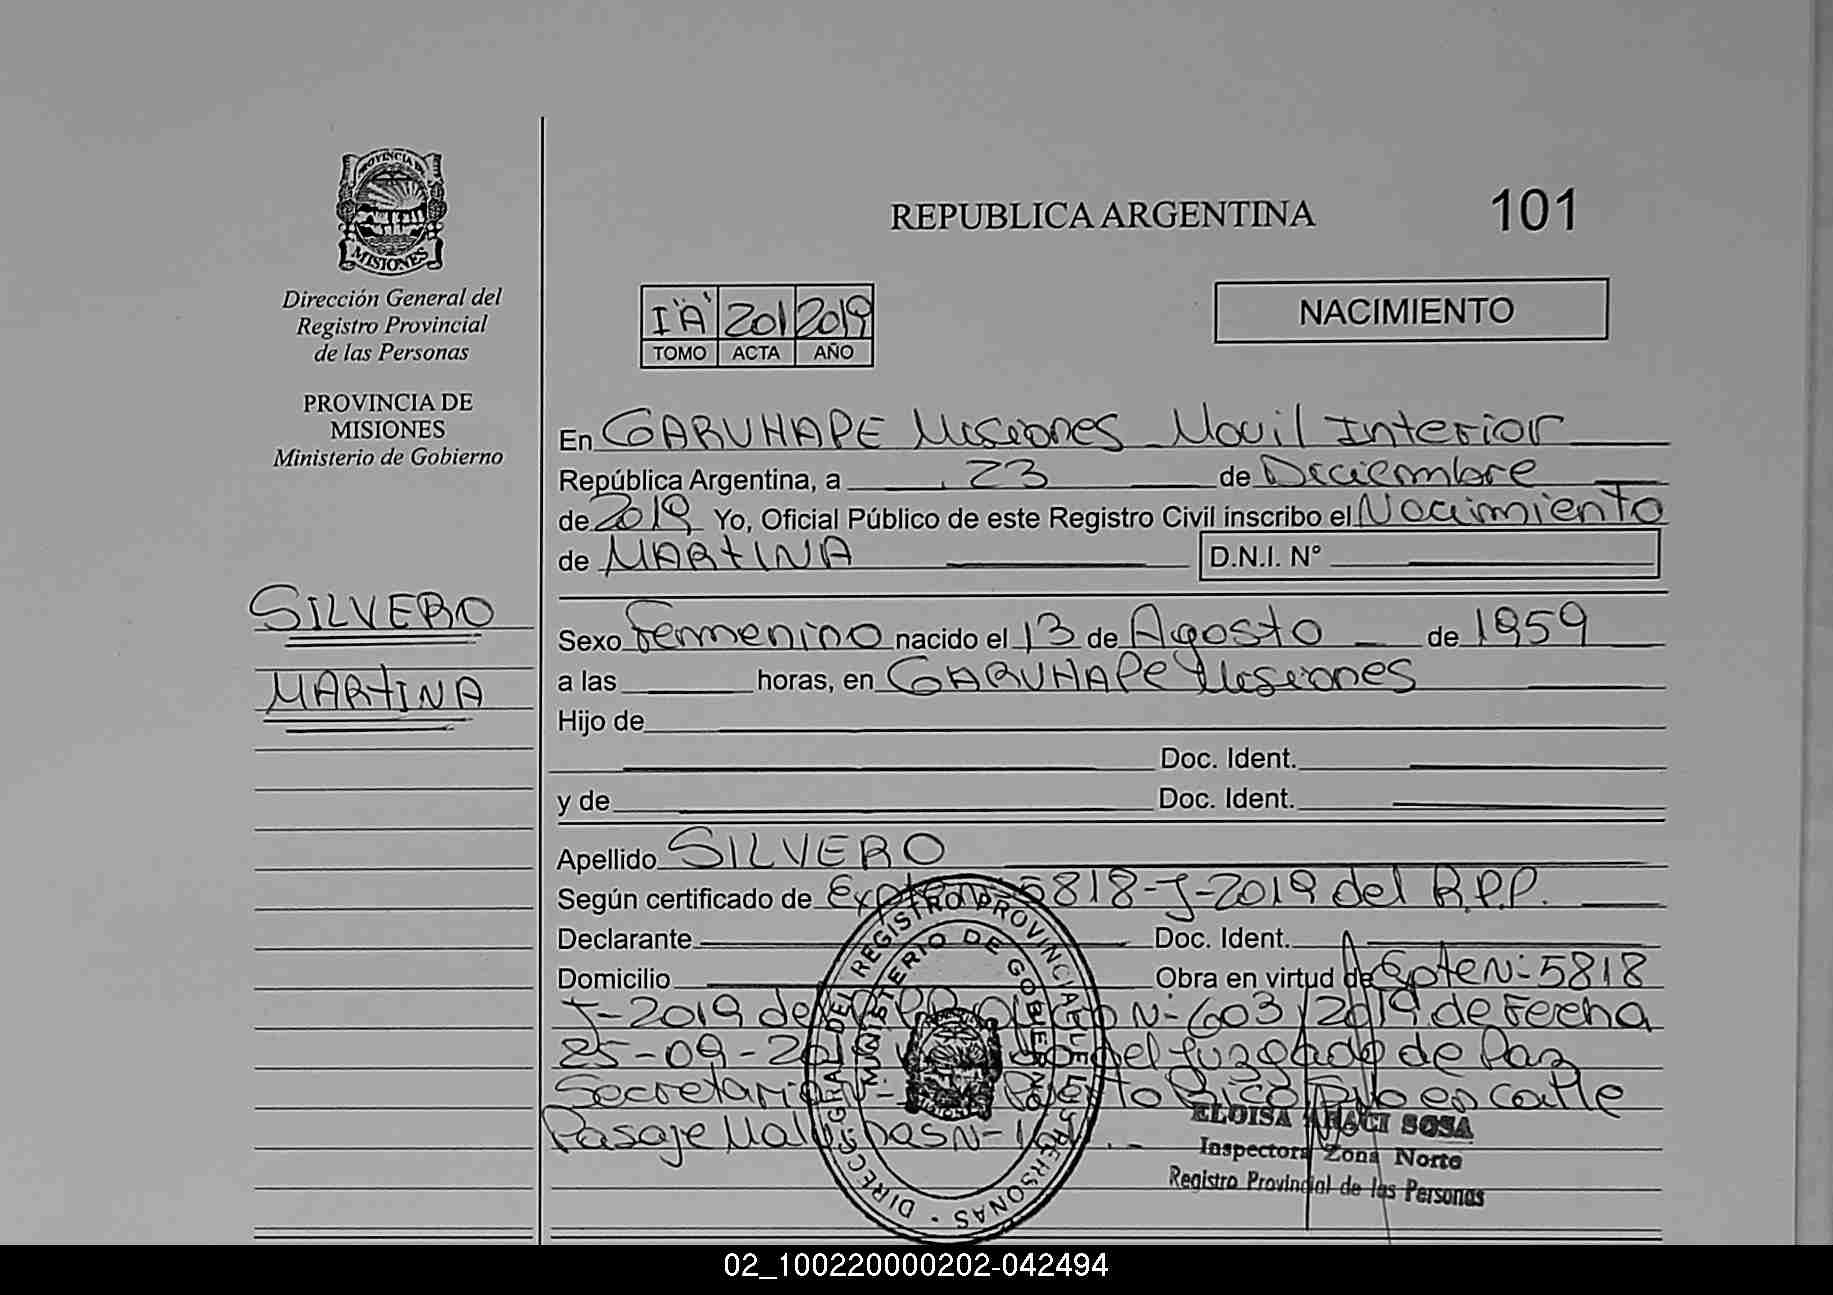 PROVINCIA DE
MISIONES
Dirección General del
Registro Provincial
de las Personas
PROVINCIA DE
MISIONES
Ministerio de Gobierno
SILVERO
MARTINA
REPUBLICA ARGENTINA
101
I"A" 201 2019
TOMO ACTA AÑO
NACIMIENTO
En GARUHAPE Misiones Movil Interior
República Argentina, a 23 de Diciembre
de 2019 Yo, Oficial Público de este Registro Civil inscribo el Nacimiento
de MARTINA D.N.I. N°
Sexo Femenino nacido el 13 de Agosto de 1959
a las horas, en GARUHAPE Misiones
Hijo de
Doc. Ident.
y de Doc. Ident.
Apellido SILVERO
Según certificado de 5818-J-2019 del R.P.P.
Declarante Doc. Ident.
Domicilio Obra en virtud de Expte N- 5818
J-2019 del R.P.P. N- 603/2019 de Fecha
25-09- del Juzgado de Paz
Rico en calle
Pasaje
DIRECC. GRAL DEL REGISTRO PROVINCIAL DE LAS PERSONAS
MINISTERIO DE GOBIERNO
MISIONES
ELOISA ARACI SOSA
Inspectora Zona Norte
Registro Provincial de las Personas
02_100220000202-042494